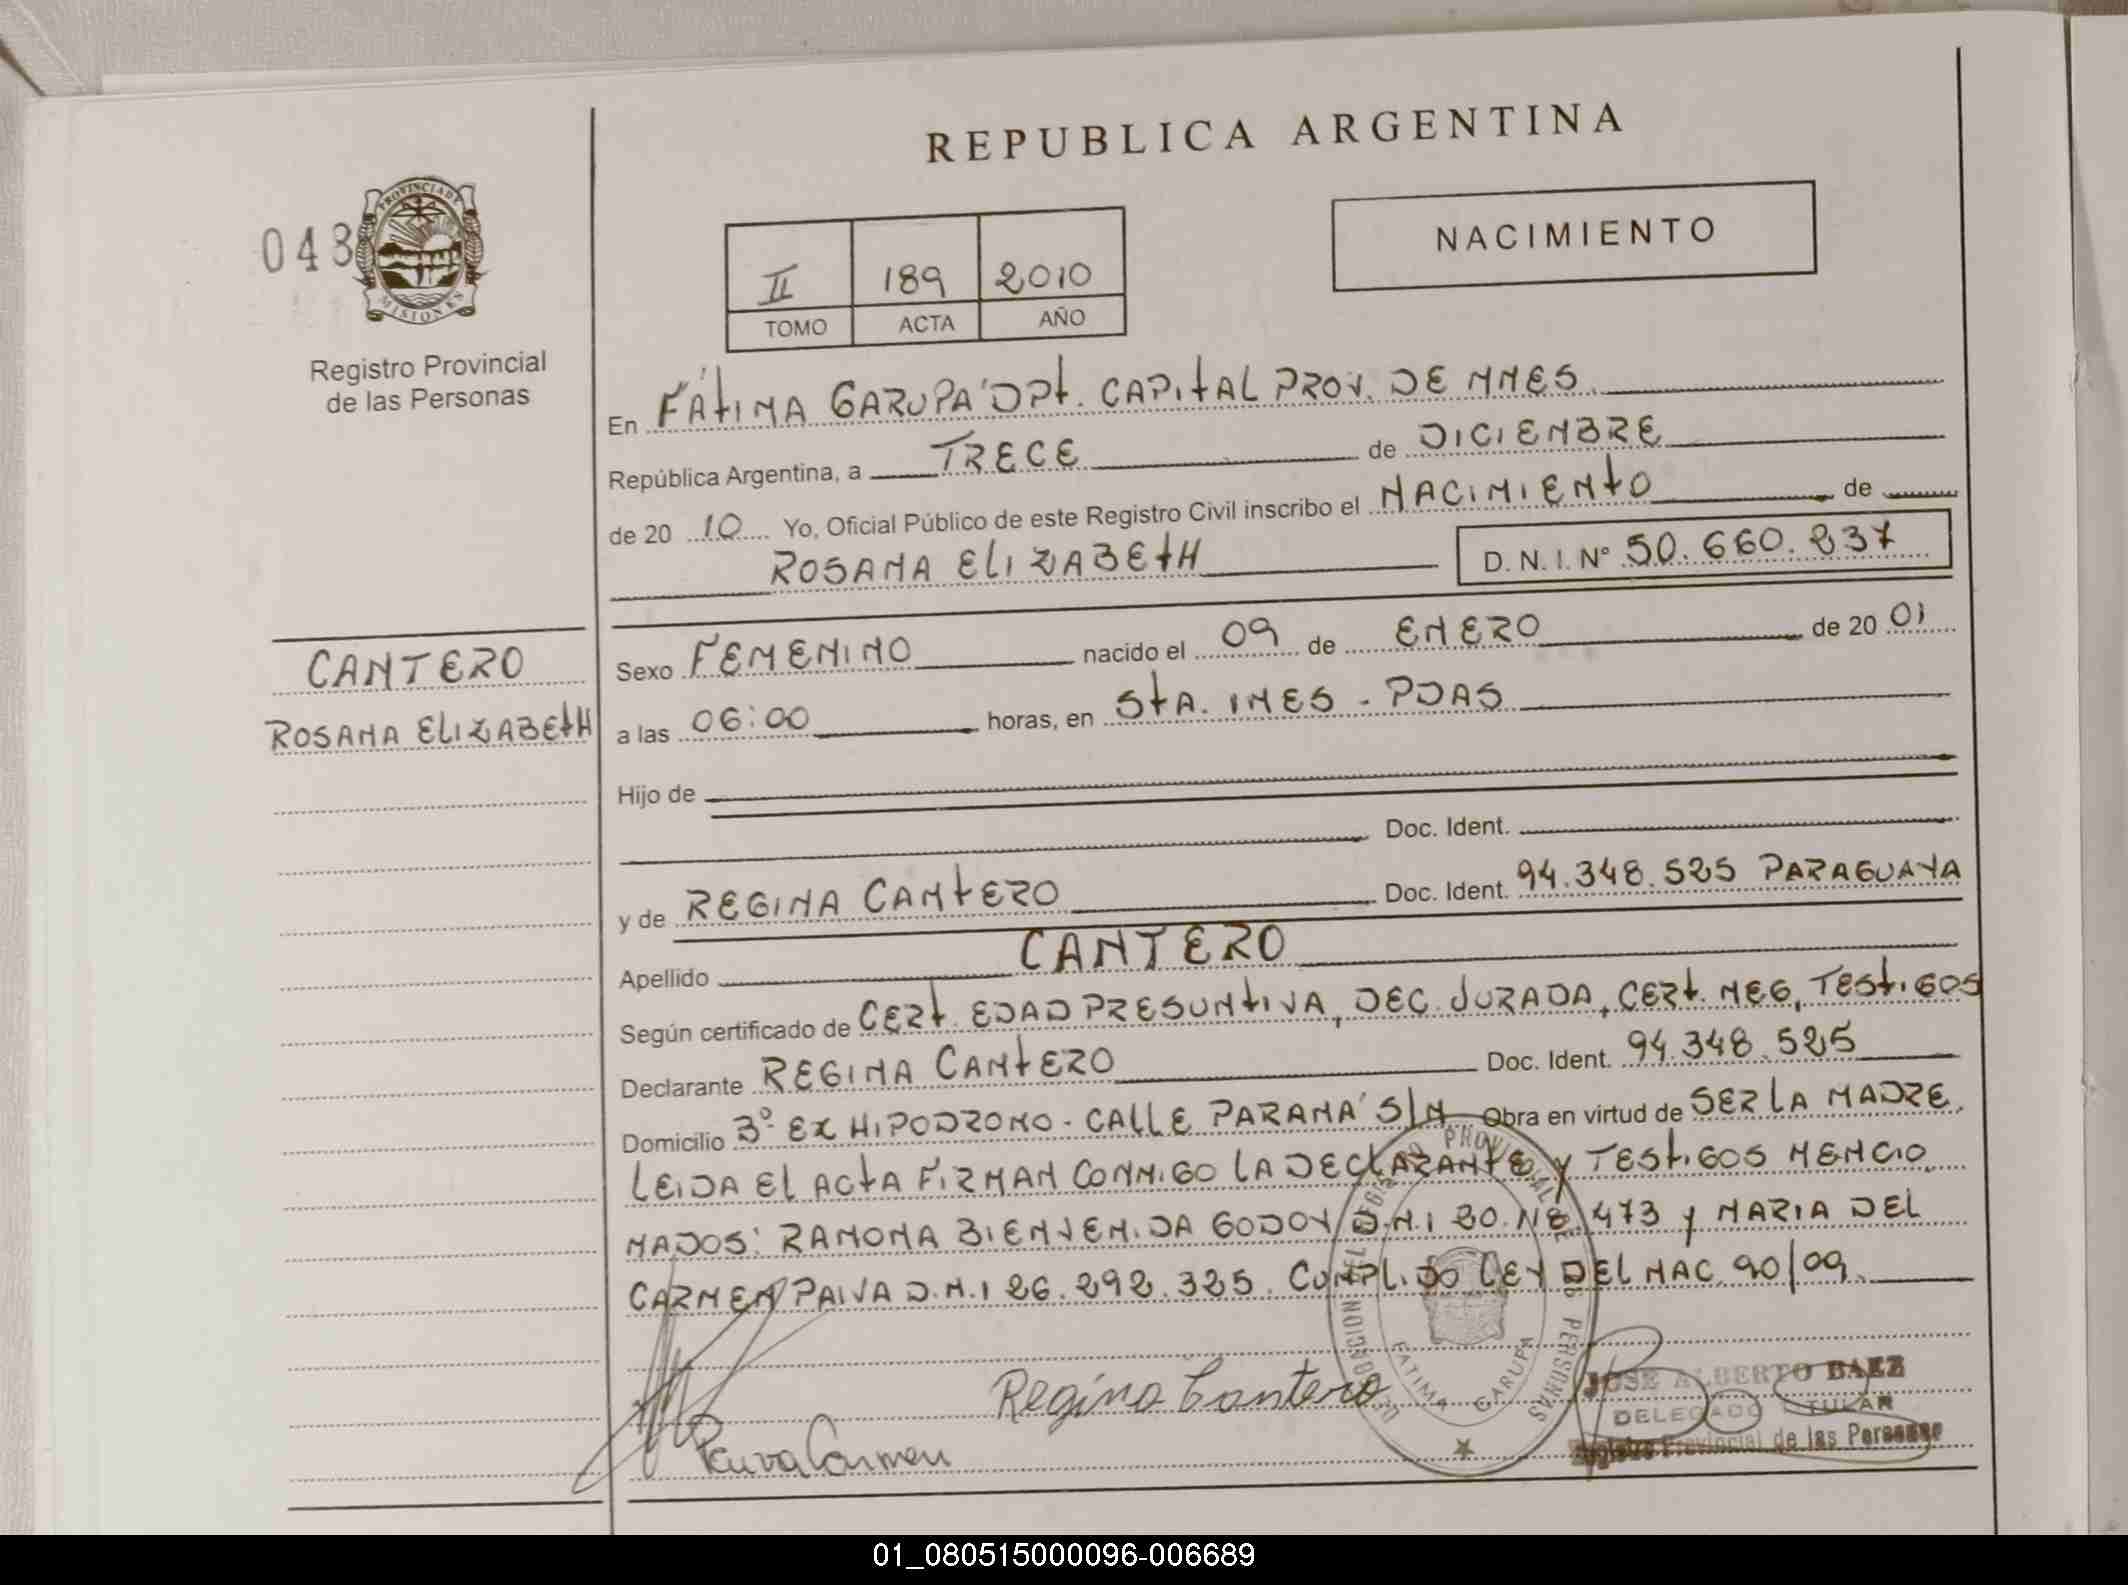 REPUBLICA ARGENTINA
043
PROVINCIA DE
MISIONES
Registro Provincial
de las Personas
II 189 2010
TOMO ACTA AÑO
NACIMIENTO
En FÁTIMA GARUPA' DPt. CAPITAL PROV. DE MNES.
República Argentina, a TRECE de DICIEMBRE
de 20 10 Yo, Oficial Público de este Registro Civil inscribo el NACIMIENTO de
ROSANA ELIZABETH D. N. I. Nº 50.660.837
CANTERO
ROSANA ELIZABETH
Sexo FEMENINO nacido el 09 de ENERO de 20 01
a las 06:00 horas, en STA. INES - PDAS
Hijo de
Doc. Ident.
y de REGINA CANTERO Doc. Ident. 94.348.525 PARAGUAYA
Apellido CANTERO
Según certificado de CERT. EDAD PRESUNTIVA, DEC. JURADA, CERT. NEG, TESTIGOS
Declarante REGINA CANTERO Doc. Ident. 94.348.525
Domicilio 3º EX HIPODROMO - CALLE PARANA' S/N Obra en virtud de SER LA MADRE.
LEIDA EL ACTA FIRMAN CONMIGO LA DECLARANTE Y TESTIGOS MENCIO
NADOS: RAMONA BIENVENIDA GODOY D.N.I 30. 473 y MARIA DEL
CARMEN PAIVA D.N.I 26.292.325. CUMPLIDO LEY DEL NAC 90/09.
Regina Cantero
Paiva Carmen
REGISTRO PROVINCIAL DE LAS PERSONAS
DELEGACION
FATIMA GARUPA
JOSE ALBERTO BAEZ
DELEGADO TITULAR
Registro Provincial de las Personas
01_080515000096-006689